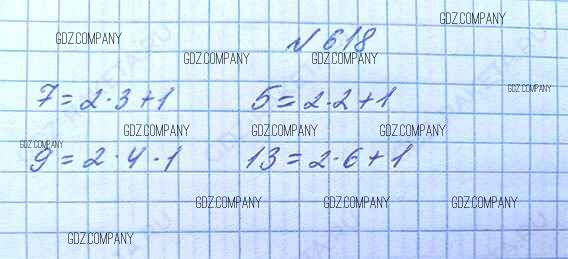 № 618
7 = 2 · 3 + 1 5 = 2 · 2 + 1
9 = 2 · 4 · 1 13 = 2 · 6 + 1
GDZ.COMPANY
GDZ.COMPANY
GDZ.COMPANY
GDZ.COMPANY
GDZ.COMPANY
GDZ.COMPANY
GDZ.COMPANY
GDZ.COMPANY
GDZ.COMPANY
GDZ.COMPANY
GDZ.COMPANY
GDZ.COMPANY
GDZ.COMPANY